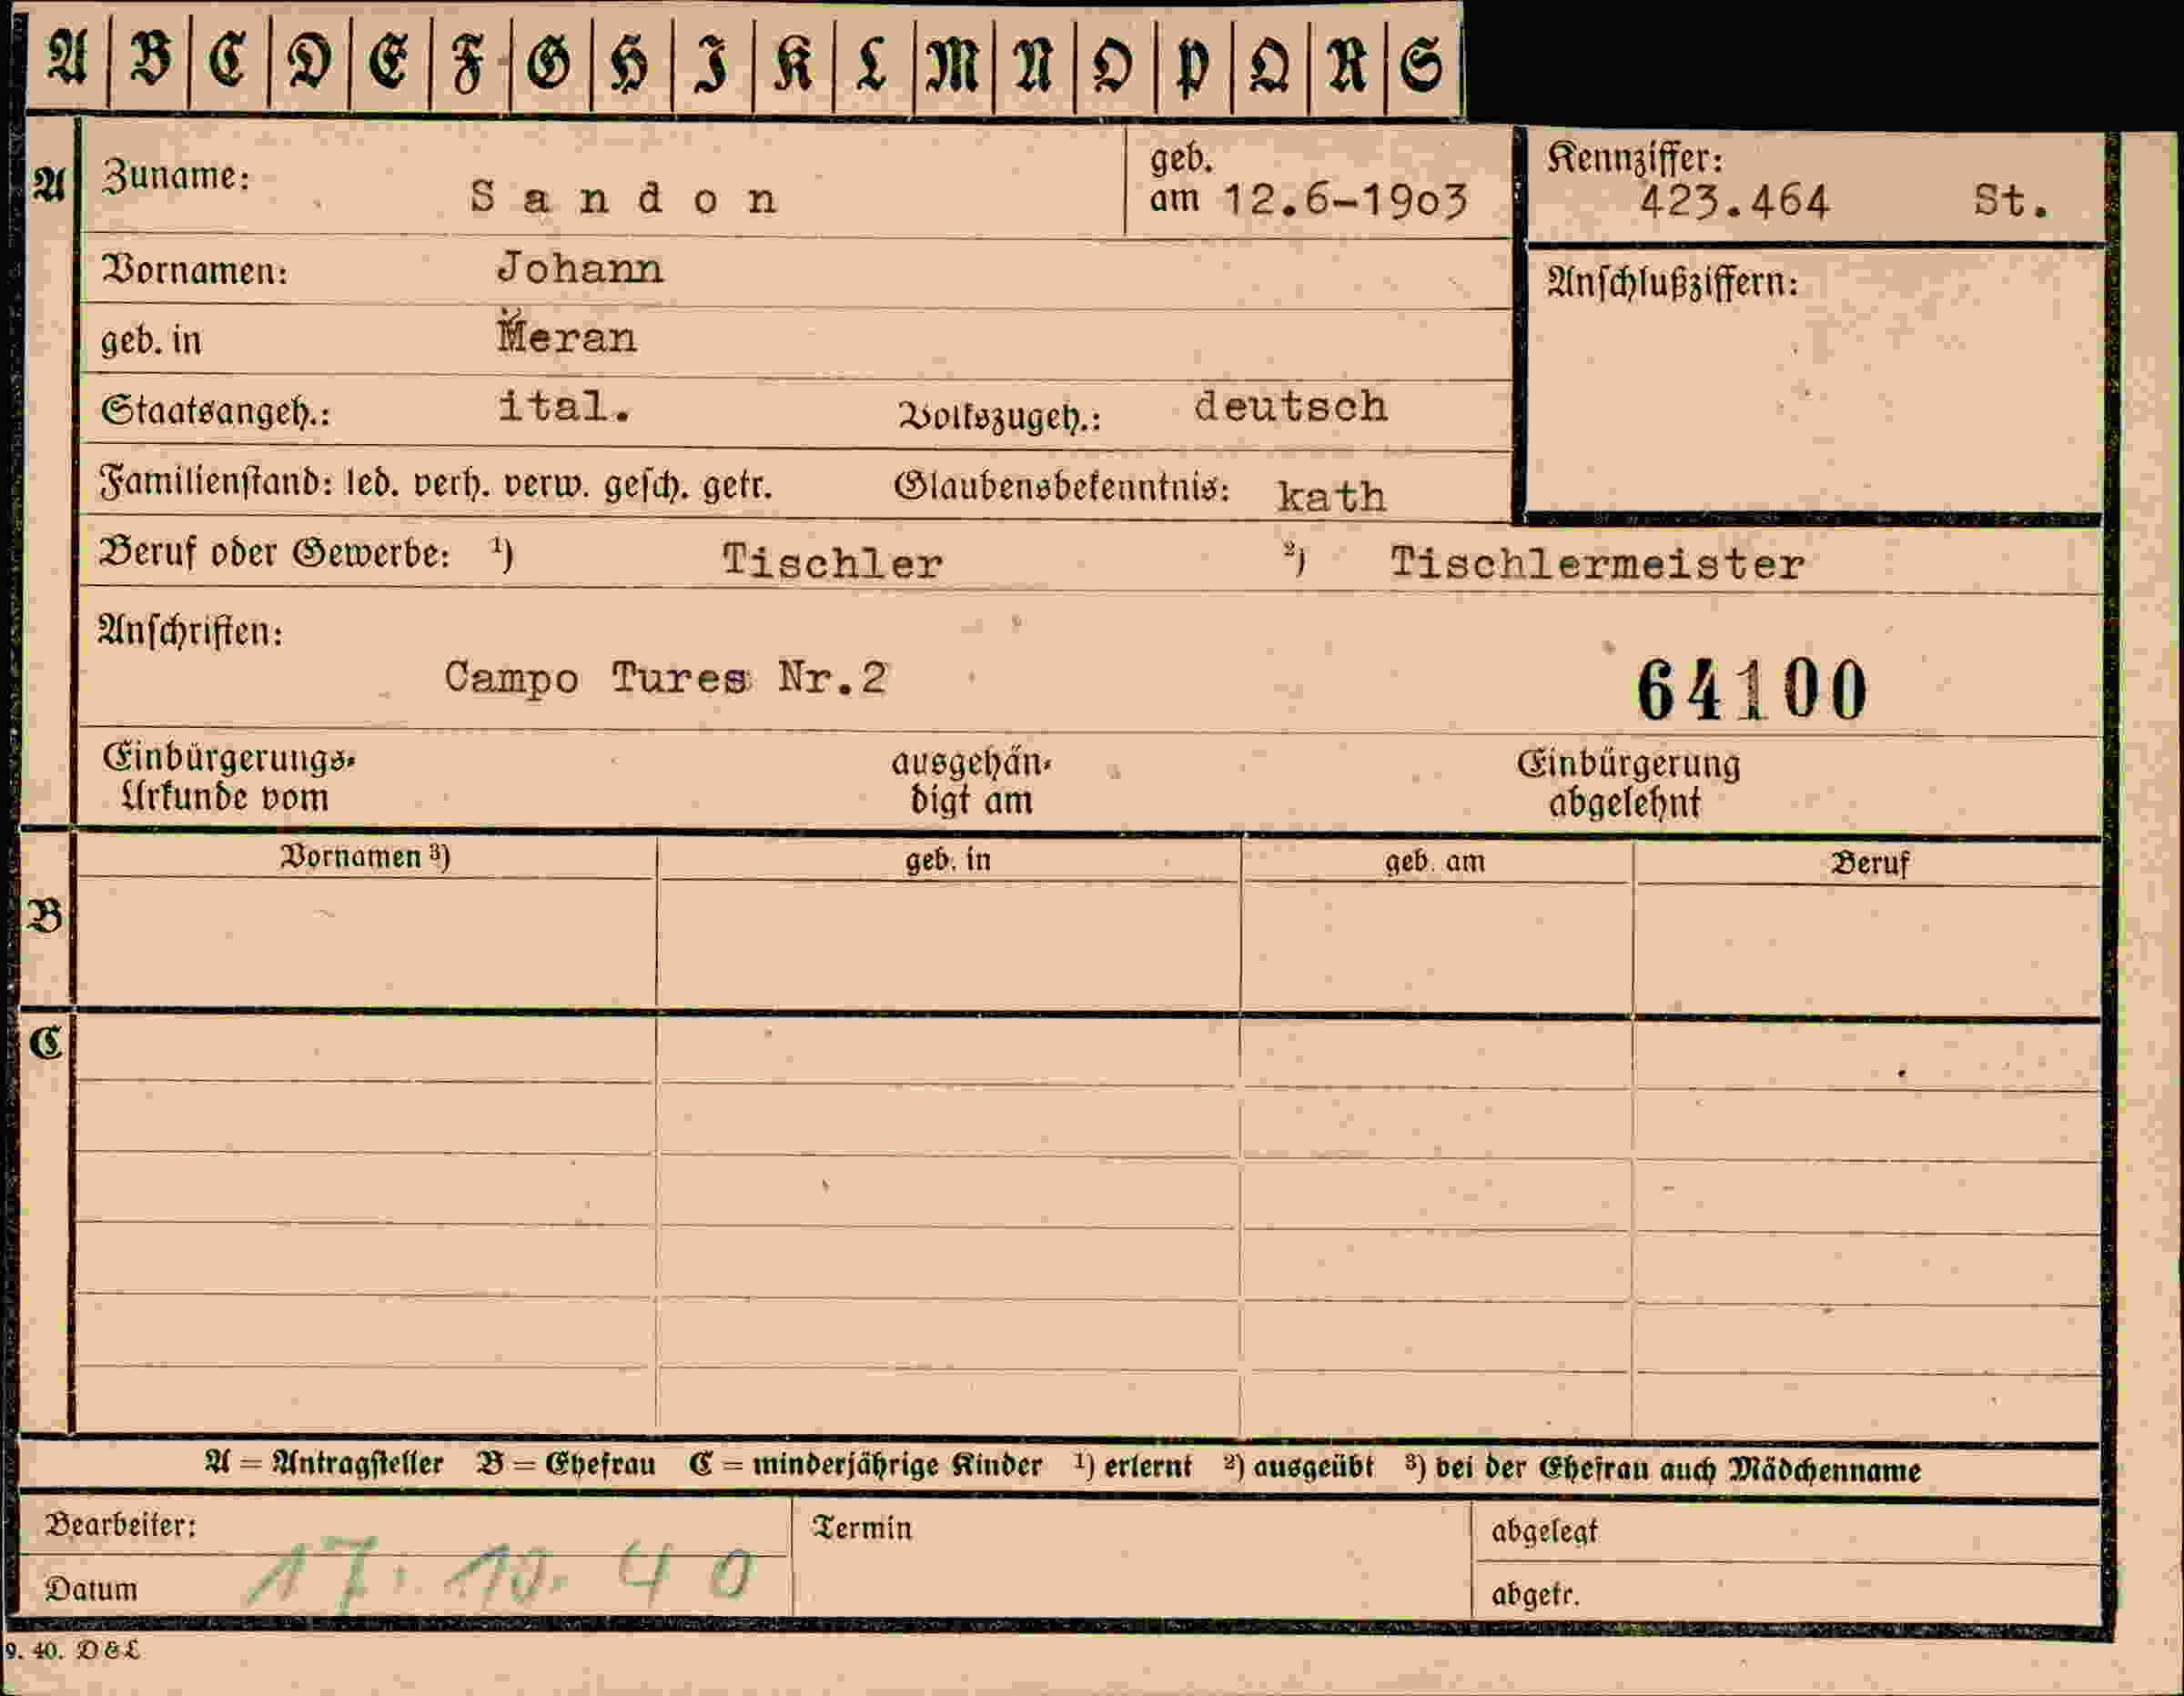 A B C D E F G H I K L M N O P Q R S
A Zuname: Sandon geb. am 12.6-1903 Kennziffer: 423.464 St.
Vornamen: Johann Anschlußziffern:
geb. in Meran
Staatsangeh.: ital. Volkszugeh.: deutsch
Familienstand: led. verh. verw. gesch. getr. Glaubensbekenntnis: kath
Beruf oder Gewerbe: ¹) Tischler ²) Tischlermeister
Anschriften:
Campo Tures Nr.2 64100
Einbürgerungs- ausgehän- Einbürgerung
Urkunde vom digt am abgelehnt
Vornamen ³) geb. in geb. am Beruf
B
C
A = Antragsteller B = Ehefrau C = minderjährige Kinder ¹) erlernt ²) ausgeübt ³) bei der Ehefrau auch Mädchenname
Bearbeiter: Termin abgelegt
Datum 17. 10. 40 abgetr.
9. 40. D & L